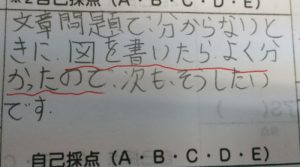 ※2自己採点（A・B・C・D・E）
文章問題で、分からないと
きに、図を書いたら、よく分
かったので、次も、そうしたい
です。
自己採点（A・B・C・D・E）